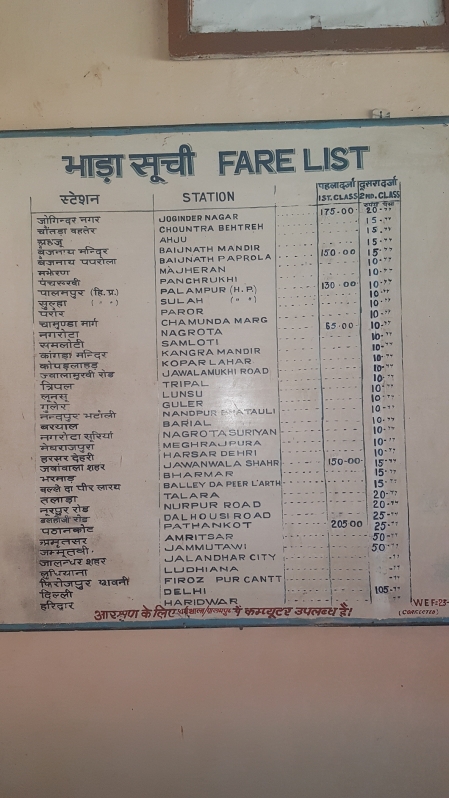 भाड़ा सूची FARE LIST
स्टेशन STATION पहलादर्जा 1ST. CLASS दूसरादर्जा 2ND. CLASS
जोगिन्दर नगर JOGINDER NAGAR 175-00 20-
चौंतड़ा बहतेर CHOUNTRA BEHTREH 15-
अहजू AHJU 15-
बैजनाथ मन्दिर BAIJNATH MANDIR 15-
बैजनाथ पपरोला BAIJNATH PAPROLA 150-00 15-
मझैरण MAJHERAN 10-
पंचरूखी PANCHRUKHI 10-
पालमपुर (हि.प्र.) PALAMPUR (H.P.) 130-00 10-
सुल्हा ( " " ) SULAH ( " " ) 10-
परोर PAROR 10-
चामुण्डा मार्ग CHAMUNDA MARG 10-
नगरोटा NAGROTA 10-
समलोटी SAMLOTI 10-
कांगड़ा मन्दिर KANGRA MANDIR 10-
कोपड़लाहड़ KOPAR LAHAR 10-
ज्वालामुखी रोड JAWALAMUKHI ROAD 10-
त्रिपल TRIPAL 10-
लूनसू LUNSU 10-
गुलेर GULER 10-
नन्दपुर भटौली NANDPUR BHATAULI 10-
बरयाल BARIAL 10-
नगरोटा सूरियां NAGROTA SURIYAN 10-
मेघराजपुरा MEGHRAJPURA 10-
हरसर देहरी HARSAR DEHRI 10-
जवांवाला शहर JAWANWALA SHAHR 150-00 15-
भरमाड़ BHARMAR 15-
बल्ले दा पीर लारथ BALLEY DA PEER L'ARTH 15-
तलाड़ा TALARA 20-
नूरपुर रोड NURPUR ROAD 20-
डलहौजी रोड DALHOUSI ROAD 25-
पठानकोट PATHANKOT 205 00 25-
अमृतसर AMRITSAR 50-
जम्मूतवी JAMMUTAWI 50
जालन्धर शहर JALANDHAR CITY
लुधियाना LUDHIANA
फिरोजपुर छावनी FIROZ PUR CANTT
दिल्ली DELHI 105-
हरिद्वार HARIDWAR
आरक्षण के लिए में कम्प्यूटर उपलब्ध है। W.E.F=23-